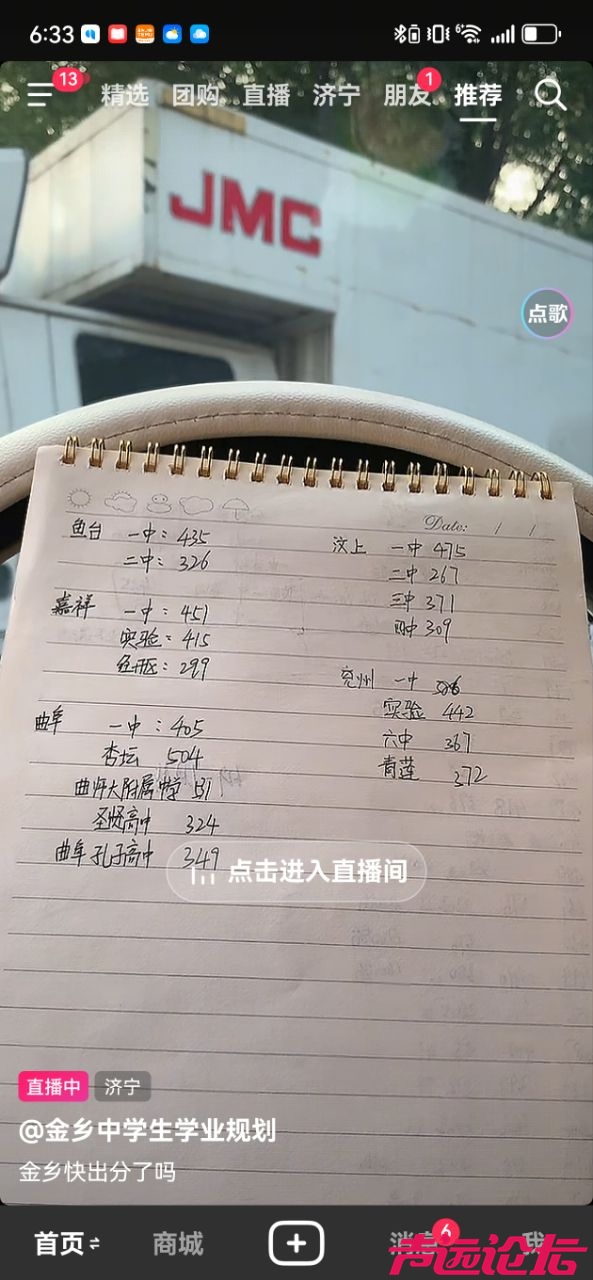 6:33
13
精选 团购 直播 济宁 朋友 1 推荐
JMC
点歌
Date: / /
鱼台 一中: 435
二中: 326
嘉祥 一中: 451
实验: 415
经开区: 299
曲阜 一中: 405
杏坛 504
曲师大附属中学 531
圣贤高中 324
曲阜孔子高中 349
汶上 一中 475
二中 267
三中 371
四中 309
兖州 一中
实验 442
六中 367
青莲 372
点击进入直播间
直播中 济宁
@金乡中学生学业规划
金乡快出分了吗
首页 商城 消息 6 我
声远论坛